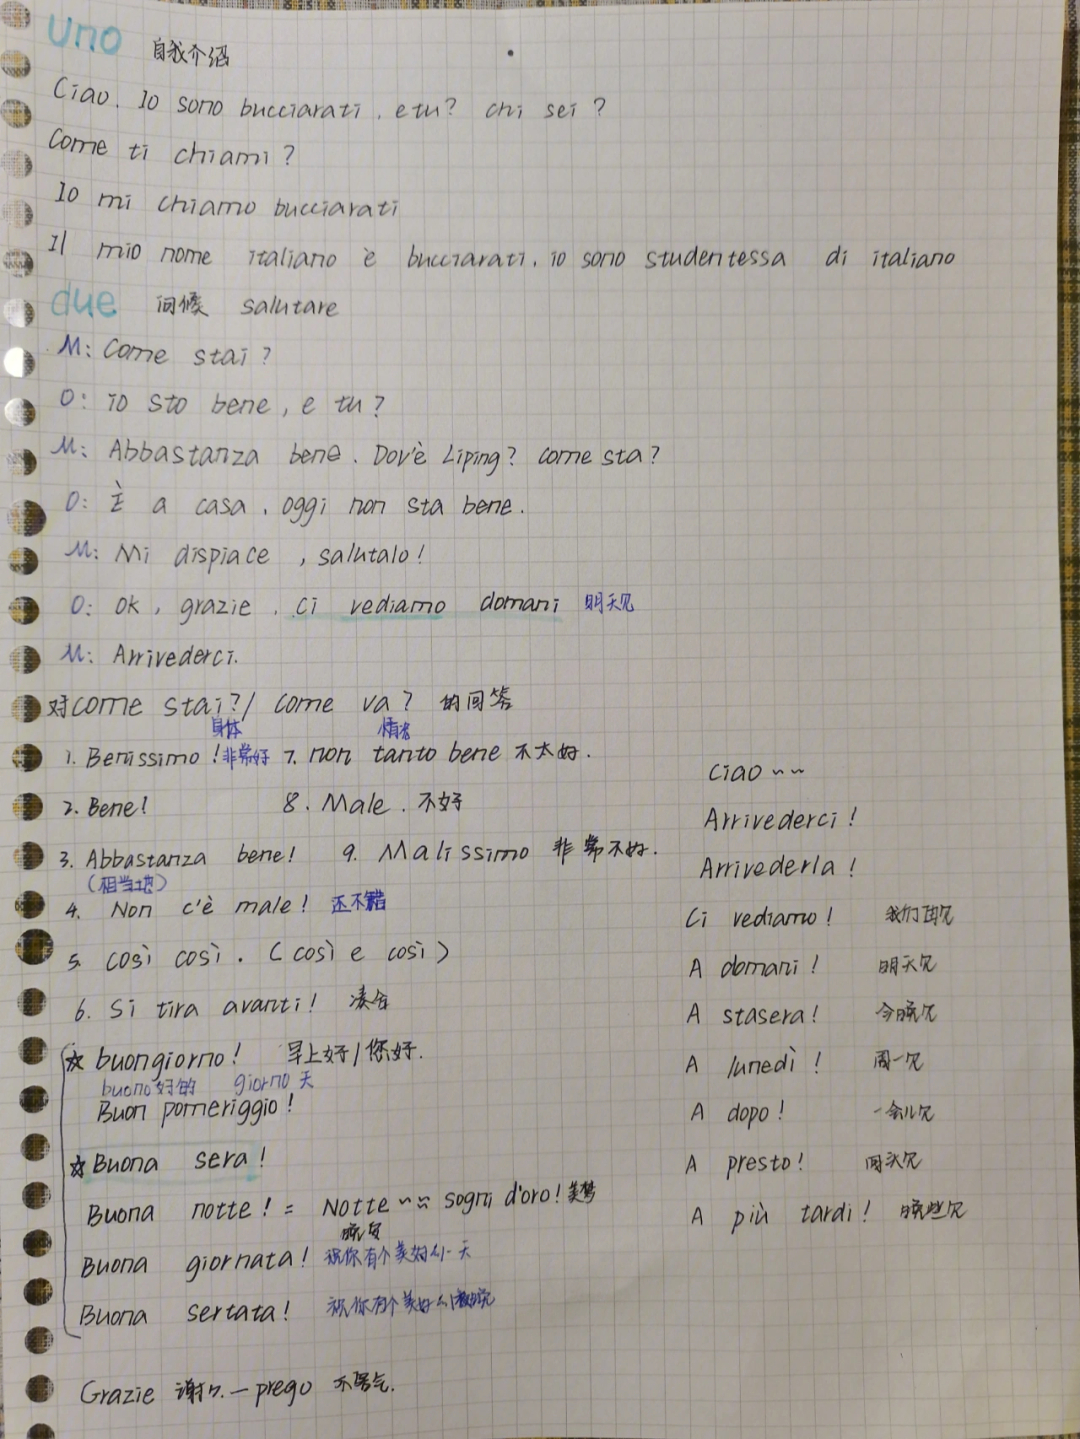 uno 自我介绍
Ciao. Io sono bucciarati. e tu? chi sei?
Come ti chiami?
Io mi chiamo bucciarati
Il mio nome italiano è bucciarati. io sono studentessa di italiano
due 问候 salutare
M: Come stai?
O: io sto bene, e tu?
M: Abbastanza bene. Dov'è Liping? come sta?
O: È a casa, oggi non sta bene.
M: Mi dispiace, salutalo!
O: ok, grazie. ci vediamo domani 明天见
M: Arrivederci.
对come stai?/ come va? 的回答
身体 情绪
1. Benissimo! 非常好 7. non tanto bene 不太好.
2. Bene! 8. Male. 不好
3. Abbastanza bene! 9. Malissimo 非常不好.
(相当地)
4. Non c'è male! 还不错
5. così così. (così e così)
6. Si tira avanti! 凑合
☆ buongiorno! 早上好/您好.
buono 好的 giorno 天
Buon pomeriggio!
☆ Buona sera!
Buona notte! = Notte ~~ sogni d'oro! 美梦
晚安
Buona giornata! 祝你有个美好的一天
Buona sertata! 祝你有个美好的
Grazie 谢谢. — prego 不客气.
Ciao ~~
Arrivederci!
Arrivederla!
Ci vediamo! 我们再见
A domani! 明天见
A stasera! 今晚见
A lunedì! 周一见
A dopo! 一会儿见
A presto! 回头见
A più tardi! 晚些见